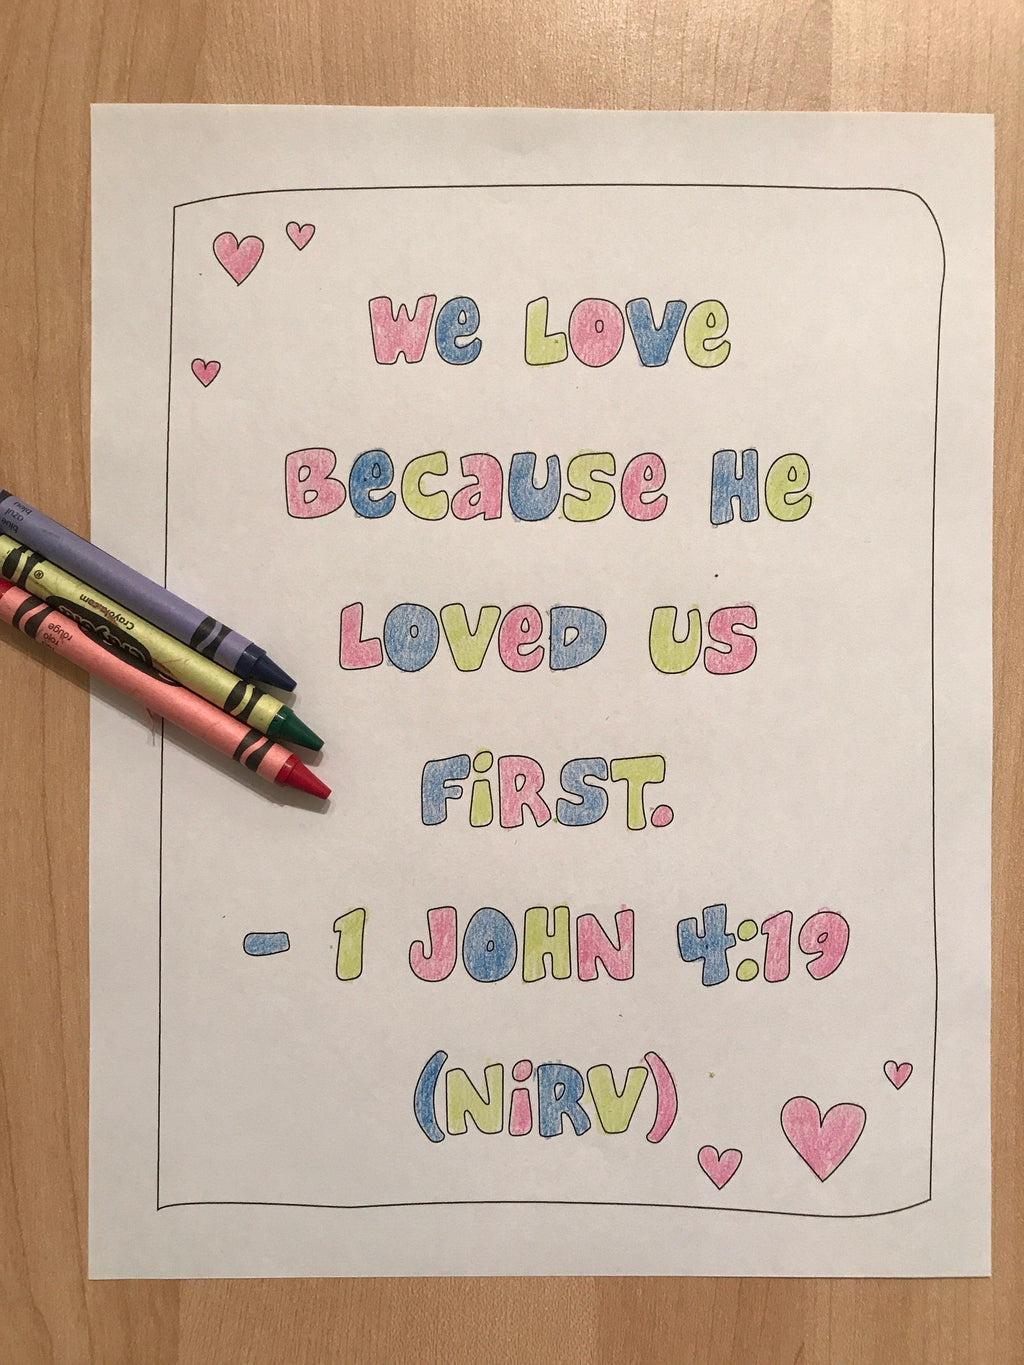 We Love
Because He
Loved us
First.
- 1 John 4:19
(NiRV)
blue
azul
bleu
®
Crayola.com
Crayola
rouge
rojo